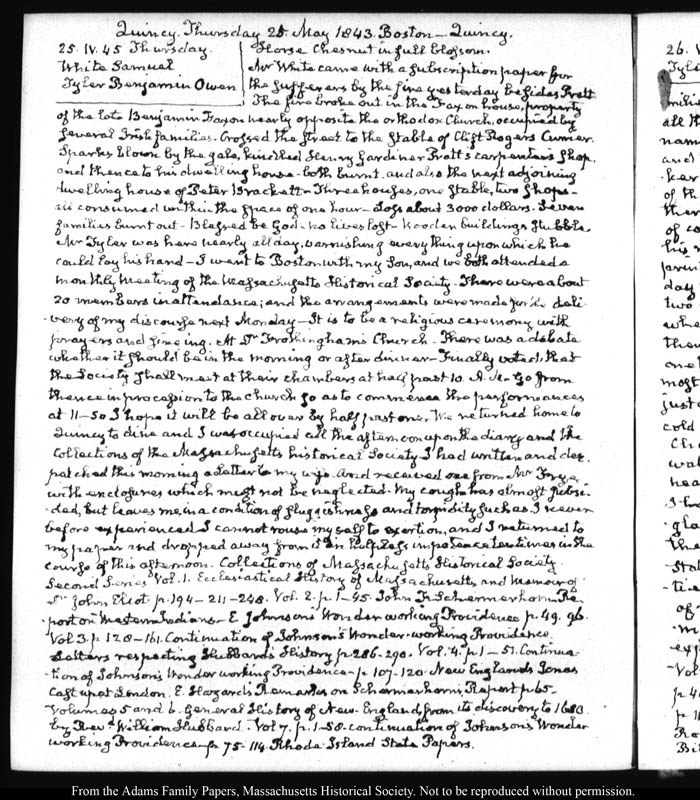 Quincy. Thursday 25. May 1843. Boston—Quincy.
25. IV. 45 Thursday.
White Samuel
Tyler Benjamin Owen
Horse Chesnut in full blossom.
Mr White came with a subscription paper for
the sufferers by the fire yesterday besides Pratt
The fire broke out in the Faxon house, property
of the late Benjamin Faxon nearly opposite the orthodox Church, occupied by
several Irish families. Crossed the street to the stable of Clift Rogers Currier.
Sparks blown by the gale, kindled Henry Gardiner Pratt's carpenter's shop,
and thence to his dwelling house—both burnt, and also the next adjoining
dwelling house of Peter Brackett—Three houses, one stable, two shops—
all consumed within the space of one hour—Loss about 3000 dollars. Seven
families burnt out—Blessed be God—no lives lost—Wooden buildings stubble.
Mr Tyler was here nearly all day, varnishing every thing upon which he
could lay his hand—I went to Boston with my Son, and we both attended a
monthly meeting of the Massachusetts Historical Society. There were about
20 members in attendance; and the arrangements were made for the deli-
very of my discourse next Monday—It is to be a religious ceremony with
prayers and singing. At Dr Frothingham's Church—There was a debate
whether it should be in the morning or after dinner—Finally voted, that
the Society shall meet at their chambers at half past 10. A.M. Go from
thence in procession to the church so as to commence the performances
at 11—So I hope it will be all over by half past one. We returned home to
Quincy to dine and I was occupied all the afternoon upon the diary and the
Collections of the Massachusetts historical Society. I had written and des-
patched this morning a Letter to my wife. And received one from Mr Frye
with enclosures which must not be neglected. My cough has almost subsi-
ded, but leaves me in a condition of sluggishness and torpidity such as I never
before experienced I cannot rouse my self to exertion, and I returned to
my paper and dropped away from it in helpless impotence ten times in the
course of this afternoon. Collections of Massachusetts Historical Society.
Second Series Vol. 1. Ecclesiastical History of Massachusetts and memoir of
Dr John Eliot. p. 194—211—248. Vol. 2. p. 1—45. John F. Schermerhorn Re-
port on Western Indians—E. Johnson's Wonder working Providence p. 49. 96.
Vol 3. p. 128—161. Continuation of Johnson's Wonder-working Providence.
Letters respecting Hubbard's History p. 286-290. Vol. 4. p. 1—51. Continua-
tion of Johnson's Wonder working Providence—p. 107-120. New England's Jonas
Cast up at London. E. Hazard's Remarks on Schermerhorn's Report p. 65—
Volumes 5 and 6. General History of New-England, from its discovery to 1680.
by Revd William Hubbard. Vol 7. p. 1-58. Continuation of Johnson's Wonder
working Providence—p. 75-114. Rhode Island State Papers.
From the Adams Family Papers, Massachusetts Historical Society. Not to be reproduced without permission.